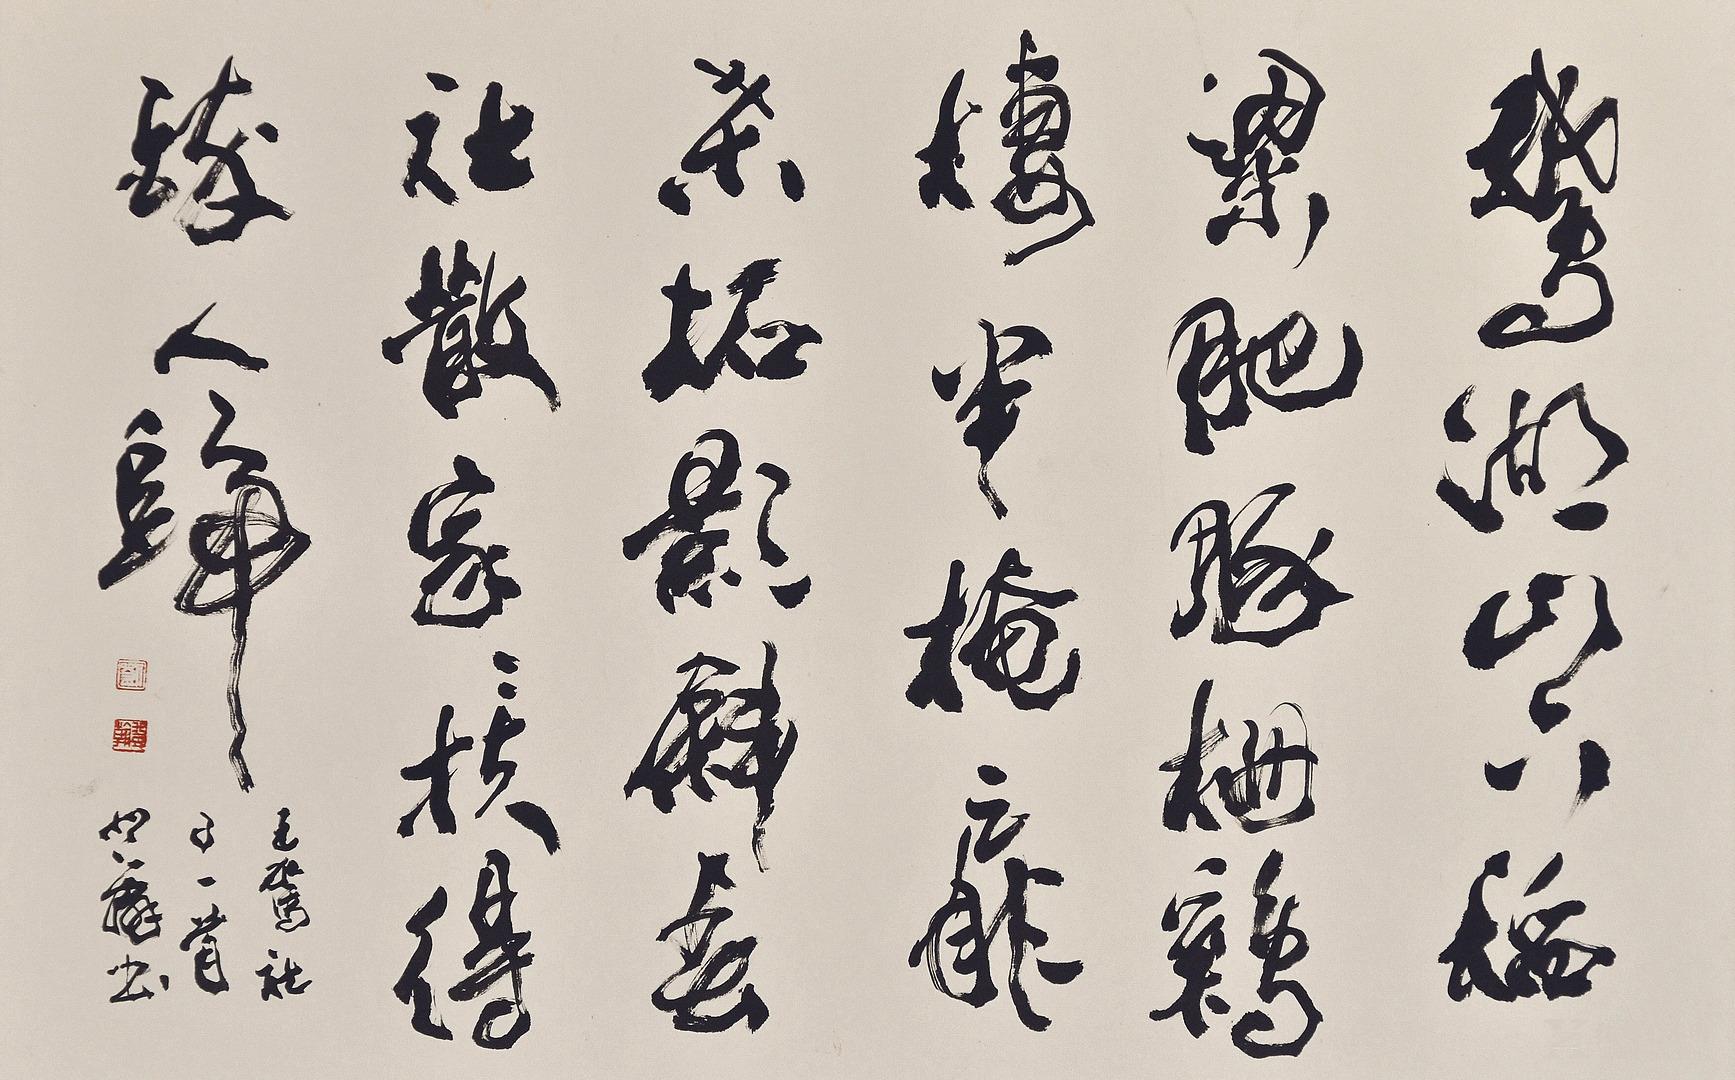 鵝湖山下稻
粱肥豚柵鷄
棲半掩扉
桑柘影斜春
社散家〻扶得
醉人歸
王駕社
日一首
書